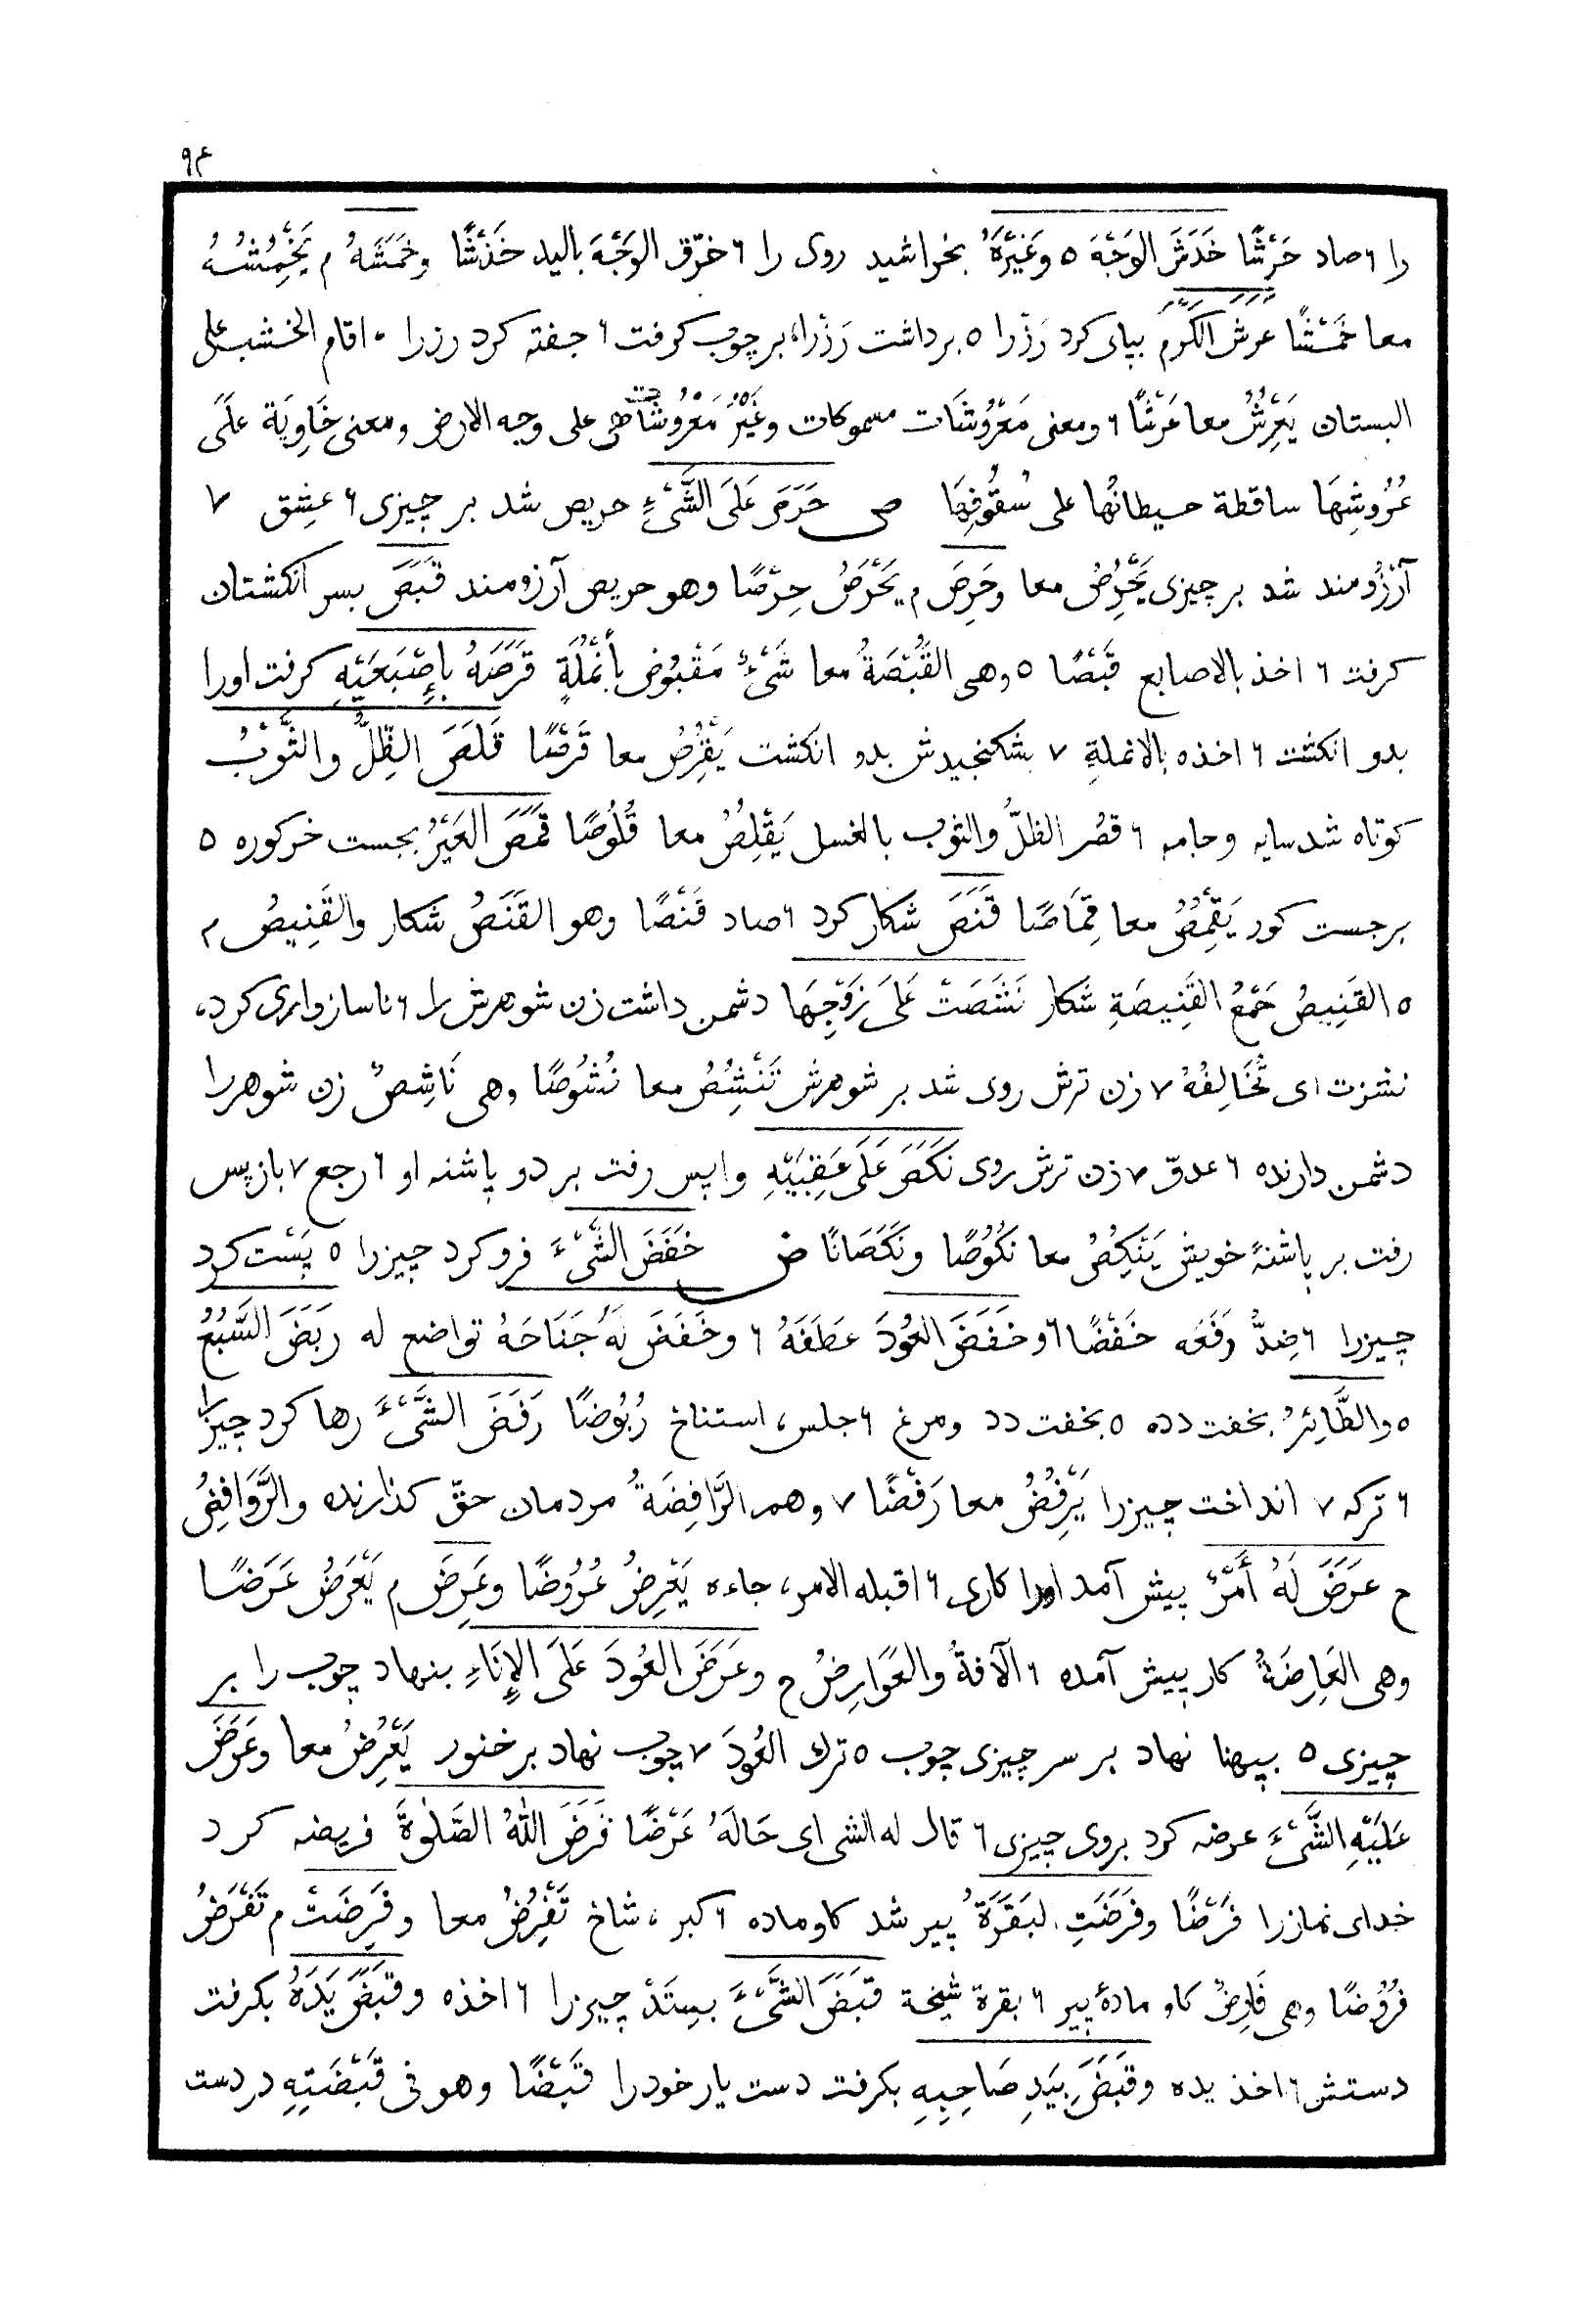 ۹۴
را ۶ صاد حَرْشًا خَدَشَ الوَجْهَ ۵ وَغَيْرَهُ بخراشید روی را ۶ خرّق الوَجْهَ بالید خَدْشًا وخَمَشَهُ م يَخْمِشُهُ
معا خَمْشًا عَرَشَ الْكَرْمَ بپای کرد رَزْرا ۵ برداشت رَزْرا، بر چوب کرفت ۶ جفته کرد رزرا ۰ اقام الخشب علی
البستان يَعْرِشُ معا عَرْشًا ۶ ومعنی مَعْرُوشَات مسموکات وغَيْرَ مَعْرُوشَات هی علی وجه الارض ومعنی خَاوِيَة عَلَى
عُرُوشِهَا ساقطة حیطانُها علی سُقُوفِهَا ص حَرَصَ عَلَى الشَّىْءِ حریص شد بر چیزی ۶ عشِق ۷
آرْزُومند شد بر چیزی يَحْرِصُ معا وحَرِصَ م يَحْرَصُ حِرْصًا وهو حریص آرزومند قَبَصَ بسر انکشتان
کرفت ۶ اخذ بالاصابع قَبْصًا ۵ وهی القُبْصَةُ معا شَىْءٌ مَقْبُوض بأَنْمُلَةٍ قَرَصَهُ بِإِصْبَعَيْهِ کرفت اورا
بدو انکشت ۶ اخذه بالانملةِ ۷ بشکنجیدش بدو انکشت يَقْرُصُ معا قَرْصًا قَلَصَ الظِّلُّ والثَّوْبُ
کوتاه شد سایه وجامه ۶ قصُر الظلُّ والثوب بالغسل يَقْلِصُ معا قُلُوصًا قَمَصَ العَيْرُ بجست خر کوره ۵
برجست کور يَقْمِصُ معا قِمَاصًا قَنَصَ شکار کرد ۶ صاد قَنْصًا وهو القَنَصُ شکار والقَنِيصُ م
۵ القَنِيصُ جَمْعُ القَنِيصَةِ شکار نَشَصَتْ عَلَى زَوْجِهَا دشمن داشت زن شوهرش را ۶ ناسازواری کرد،
نشزت ای تُخَالِفُهُ ۷ زن ترش روی شد بر شوهرش تَنْشِصُ معا نُشُوصًا وهی نَاشِصٌ زن شوهررا
دشمن دارنده ۶ عدوّ ۷ زن ترش روی نَكَصَ عَلَى عَقِبَيْهِ واپس رفت بر دو پاشنه او ۶ رجع ۷ باز پس
رفت بر پاشنهٔ خویش يَنْكِصُ معا نُكُوصًا ونَكَصَانًا ض خَفَضَ الشَّىْءَ فرو کرد چیزرا ۵ پَسْت کرد
چیزرا ۶ ضِدُّ رَفَعَه خَفْضًا ۶ وخَفَضَ العُودَ عَطَفَهُ ۶ وخَفَضَ لَهُ جَنَاحَهُ تواضع له رَبَضَ السَّبُعُ
۵ والطَّائِرُ بخفت دده ۵ بخفت دد ومرغ ۶ جلس، استناخ رُبُوضًا رَفَضَ الشَّىْءَ رها کرد چیزرا
۶ ترکه ۷ انداخت چیزرا يَرْفُضُ معا رَفْضًا ۷ وهم الرَّافِضَةُ مردمان حقّ کذارنده والرَّوَافِضُ
ح عَرَضَ لَهُ أَمْرٌ پیش آمد اورا کاری ۶ اقبله الامر، جاءه يَعْرِضُ عُرُوضًا وعَرِضَ م يَعْرَضُ عَرَضًا
وهی العَارِضَةُ کار پیش آمده ۶ الآفةُ والعَوَارِضُ ح وعَرَضَ العُودَ عَلَى الإِنَاءِ بنهاد چوب را بر
چیزی ۵ بپهنا نهاد بر سر چیزی چوب ۵ ترك العُودَ ۷ چوب نهاد بر خنور يَعْرِضُ معا وعَرَضَ
عَلَيْهِ الشَّىْءَ عرضه کرد بروی چیزی ۶ قال له الشی ای حَالَهُ عَرْضًا فَرَضَ اللهُ الصَّلٰوةَ فریضه کرد
خدای نمازرا فَرْضًا وفَرَضَتِ البَقَرَةُ پیر شد کاو ماده ۶ اکبر، شاخ تَفْرِضُ معا وفَرِضَتْ م تَفْرَضُ
فُرُوضًا وهی فَارِضٌ کاو مادهٔ پیر ۶ بقرة شیخة قَبَضَ الشَّىْءَ بستَدْ چیزرا ۶ اخذه وقَبَضَ يَدَهُ بکرفت
دستش ۶ اخذ یده وقَبَضَ بِيَدِ صَاحِبِهِ بکرفت دست یار خودرا قَبْضًا وهو فی قَبْضَتِهِ در دست